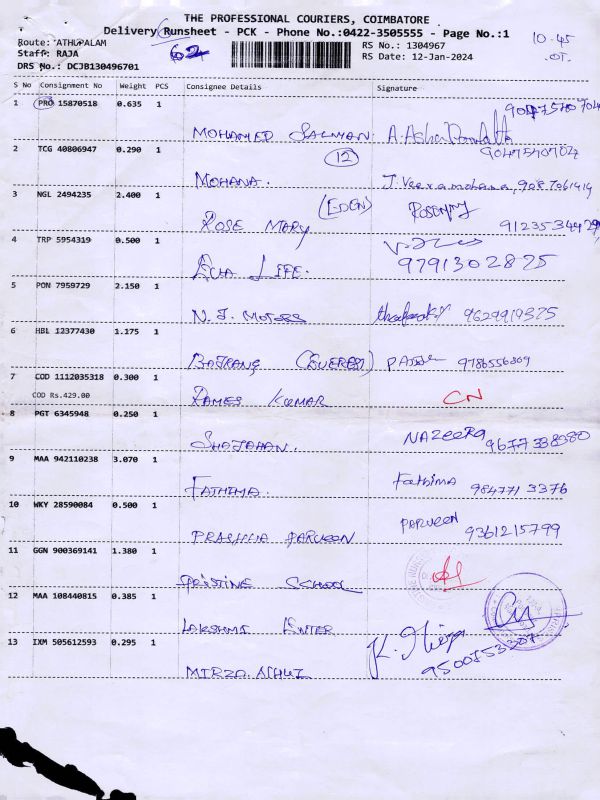 THE PROFESSIONAL COURIERS, COIMBATORE
Delivery Runsheet - PCK - Phone No.:0422-3505555 - Page No.:1
Route: ATHUPALAM
Staff: RAJA
DRS No.: DCJB130496701
62
RS No.: 1304967
RS Date: 12-Jan-2024
10-45
OT.
S No Consignment No Weight PCS Consignee Details Signature
1 PRO 15870518 0.635 1
MOHAMED SALMAN.
2 TCG 40806947 0.290 1 (12) 9047540704
MOHANA. J. Veeramohana, 9087061419
3 NGL 2494235 2.400 1
ROSE MARY (EDEN) Rosemary
4 TRP 5954319 0.500 1
LIFE. 9791302825
5 PON 7959729 2.150 1
N. J. MOTORS 9629919375
6 HBL 12377430 1.175 1
BAJRANG (EVEREST) 9786556309
7 COD 1112035318 0.300 1
COD Rs.429.00
RAMES KUMAR CN
8 PGT 6345948 0.250 1
SHAJAHAN. NAZEERA 9677338980
9 MAA 942110238 3.070 1
FATHIMA. Fathima 984771 3376
10 WKY 28590084 0.500 1
PARVEEN PARVEEN 9361215799
11 GGN 900369141 1.380 1
SCHOOL
12 MAA 108440815 0.385 1
LAKSHMI ENTER
13 IXM 505612593 0.295 1
MIRZA 9500753307